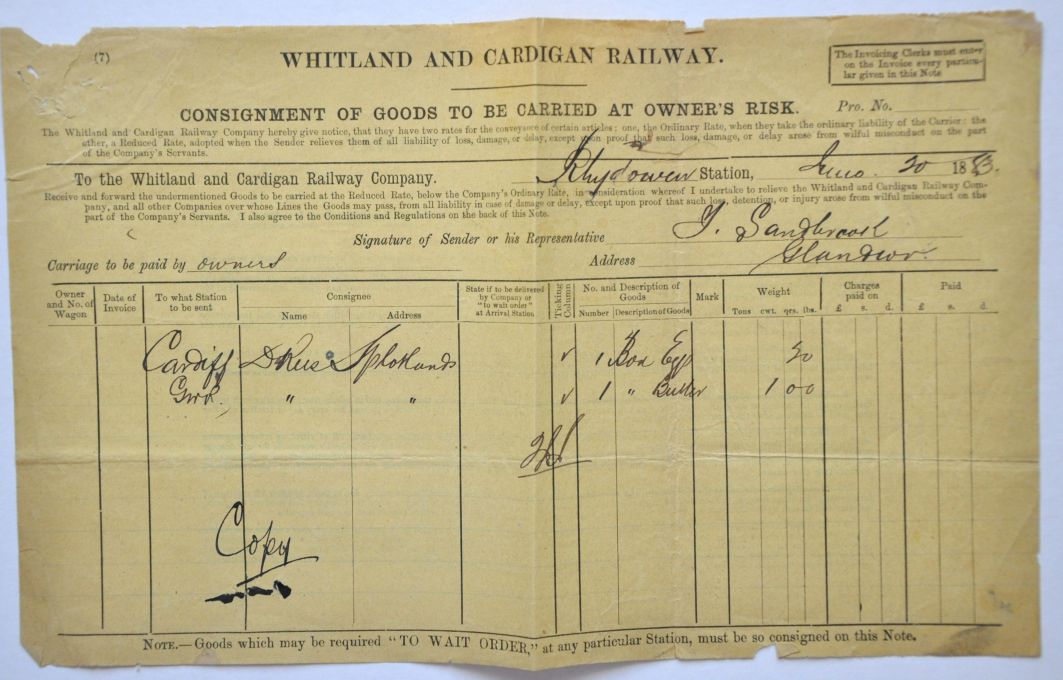 (7)
WHITLAND AND CARDIGAN RAILWAY.
The Invoicing Clerks must enter
on the Invoice every particu-
lar given in this Note
CONSIGNMENT OF GOODS TO BE CARRIED AT OWNER'S RISK.
Pro. No.
The Whitland and Cardigan Railway Company hereby give notice, that they have two rates for the conveyance of certain articles; one, the Ordinary Rate, when they take the ordinary liability of the Carrier; the
other, a Reduced Rate, adopted when the Sender relieves them of all liability of loss, damage, or delay, except upon proof that such loss, damage, or delay arose from wilful misconduct on the part
of the Company's Servants.
To the Whitland and Cardigan Railway Company. Rhydowen Station, 20 1883.
Receive and forward the undermentioned Goods to be carried at the Reduced Rate, below the Company's Ordinary Rate, in consideration whereof I undertake to relieve the Whitland and Cardigan Railway Com-
pany, and all other Companies over whose Lines the Goods may pass, from all liability in case of damage or delay, except upon proof that such loss, detention, or injury arose from wilful misconduct on the
part of the Company's Servants. I also agree to the Conditions and Regulations on the back of this Note.
Signature of Sender or his Representative Sandbrook
Carriage to be paid by owners
Address Glandwr.
Owner and No. of Wagon
Date of Invoice
To what Station to be sent
Consignee
Name
Address
State if to be delivered by Company or "to wait order" at Arrival Station
Ticking Column
No. and Description of Goods
Number
Description of Goods
Mark
Weight
Tons cwt. qrs. lbs.
Charges paid on
£ s. d.
Paid
£ s. d.
Cardiff D Rees Splotlands 1 Box Egg
" " 1 " Butter 1 0 0
Copy
NOTE.—Goods which may be required "TO WAIT ORDER," at any particular Station, must be so consigned on this Note.